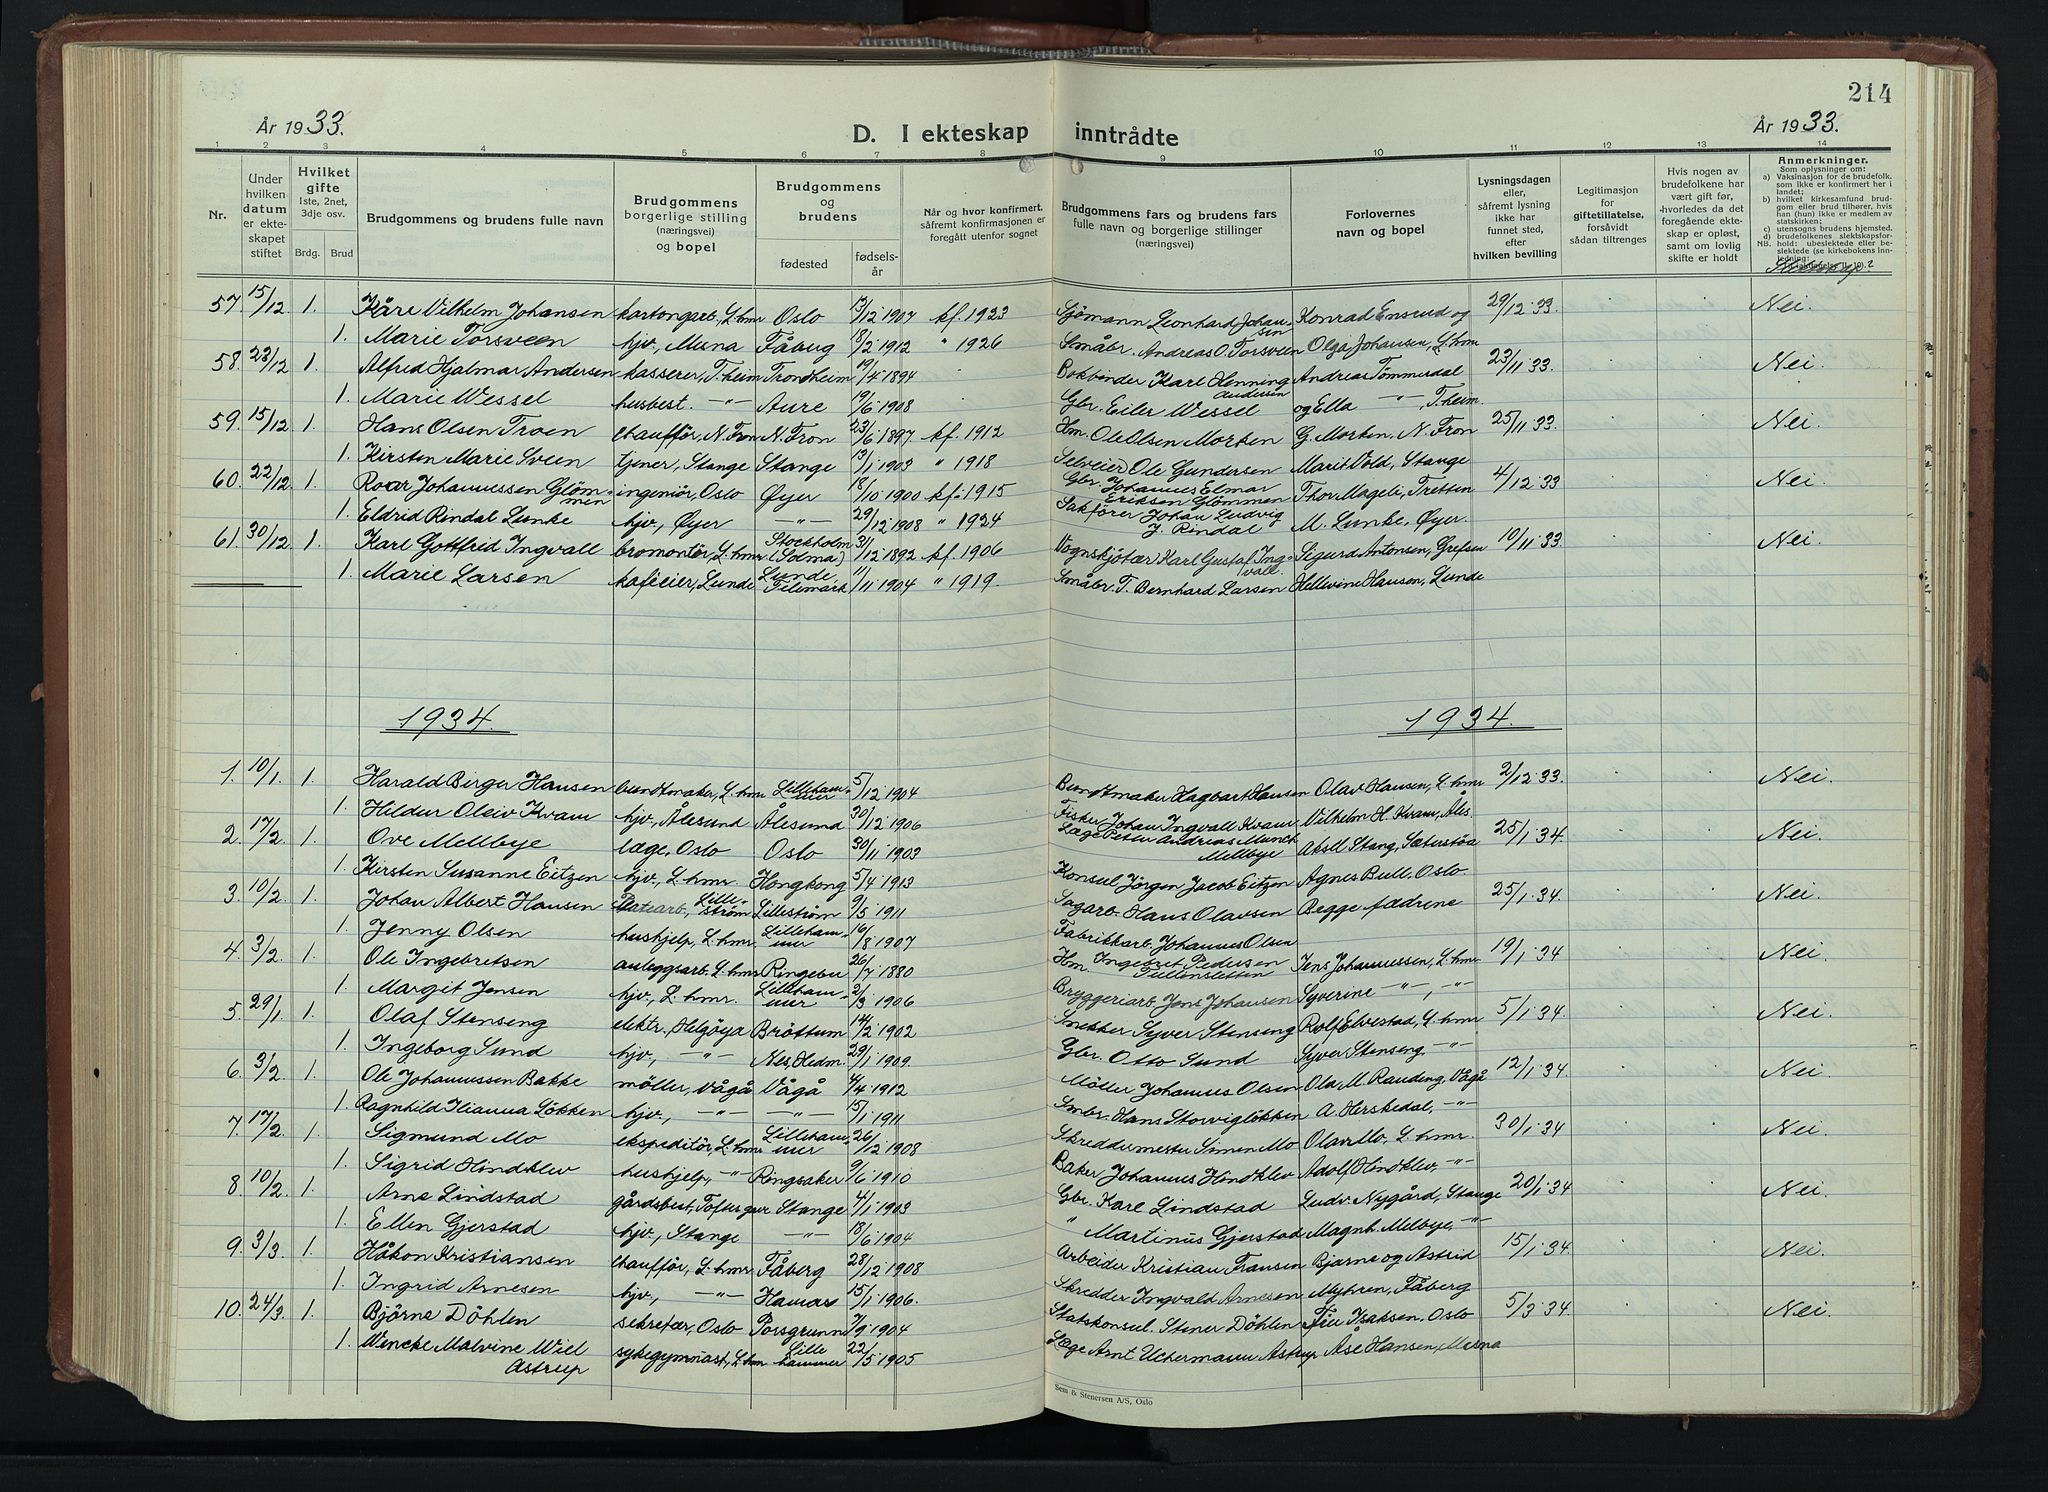 214
År 1933.
D. I ekteskap inntrådte
År 1933.
1 2 3 4 5 6 7 8 9 10 11 12 13 14
Nr.
Under hvilken datum er ekteskapet stiftet
Hvilket gifte 1ste, 2net, 3dje osv.
Brdg. Brud
Brudgommens og brudens fulle navn
Brudgommens borgerlige stilling (næringsvei) og bopel
Brudgommens og brudens
fødested
fødselsår
Når og hvor konfirmert, såfremt konfirmasjonen er foregått utenfor sognet
Brudgommens fars og brudens fars fulle navn og borgerlige stillinger (næringsvei)
Forlovernes navn og bopel
Lysningsdagen eller, såfremt lysning ikke har funnet sted, efter hvilken bevilling
Legitimasjon for giftetillatelse, forsåvidt sådan tiltrenges
Hvis nogen av brudefolkene har vært gift før, -hvorledes da det foregående ekteskap er opløst, samt om lovlig skifte er holdt
Anmerkninger.
Som oplysninger om:
a) Vaksinasjon for de brudefolk, som ikke er konfirmert her i landet;
b) hvilket kirkesamfund brudgom eller brud tilhører, hvis han (hun) ikke er medlem av statskirken;
c) utensogns brudens hjemsted.
d) brudefolkenes slektskapsforhold: ubeslektede eller beslektede (se kirkebokens innledning:
57. 15/12 1. Kåre Vilhelm Johansen kartongarb., L.hmr Oslo 13/12 1907 kf. 1923 Sjömann Leonhard Johansen Konrad Ensrud og 29/12 33. Nei.
1. Marie Torsveen hjv., Mesna Fåberg 18/2 1912 " 1926 Småbr. Andreas O. Torsveen Olga Johansen, L.hmr
58. 23/12 1. Alfred Hjalmar Andersen kasserer, T.heim Trondheim 19/4 1894 Bokbinder Karl Henning Andersen Andreas Tömmerdal 23/11 33. Nei.
1. Marie Wessel husbest. -"- Aure 19/6 1908 Gbr. Eiler Wessel og Ella -"-, T.heim.
59. 15/12 1. Hans Olsen Troen chaufför, N. Fron N. Fron 23/6 1897 kf. 1912 Hm. Ole Olsen Morken G. Morken, N. Fron 25/11 33. Nei.
1. Kirsten Marie Sveen tjener, Stange Stange 13/1 1903 " 1918 Selveier Ole Gundersen Marit Vold, Stange
60. 22/12 1. Roar Johannessen Glömmen ingeniör, Oslo Øyer 18/10 1900 kf. 1915 Gbr. Johannes Elmar Eriksen Glömmen Thor Mageli, Tretten 4/12 33 Nei.
1. Eldrid Rindal Lunke hjv., Øyer -"- 29/12 1908 " 1924 Sakförer Johan Ludvig J. Rindal M. Lunke, Øyer.
61. 30/12 1. Karl Gottfrid Ingvall bromontör, L.hmr Stockholm (Solma) 31/12 1892 kf. 1906 Vognskjötær Karl Gustaf Ingvall Sigurd Antonsen, Grefsen 10/11 33. Nei.
1. Marie Larsen kaféeier, Lunde Lunde, Telemark 11/11 1904 " 1919. Småbr. T. Bernhard Larsen Hellevine Hansen, Lunde
1934. 1934.
1. 10/1. 1. Harald Birger Hansen buntmaker, L.hmr Lillehammer 5/12 1904 Buntmaker Hagbart Hansen Olav Hansen, L.hmr 2/12 33. Nei.
1. Hildur Oleiv Kvam hjv., Ålesund Ålesund 30/12 1906 Fisker Johan Ingvall Kvam Vilhelm H. Kvam, Åles.
2. 17/2. 1. Ove Mellbye læge, Oslo Oslo 30/11 1903 Læge Peter Andreas Munch Mellbye Aksel Stang, Sæterstöa 25/1 34. Nei.
1. Kirsten Susanne Eitzen hjv., L.hmr. Hongkong 5/4 1913 Konsul Jörgen Jacob Eitzen Agnes Bull, Oslo
3. 10/2. 1. Johan Albert Hansen Lilleström Lilleström 9/5 1911 Sagarb. Hans Olavsen Begge fædrene 25/1 34. Nei.
1. Jenny Olsen hushjelp, L.hmr. Lillehammer 16/8 1907 Fabrikkarb. Johannes Olsen
4. 3/2. 1. Ole Ingebretsen anleggsarb. L.hmr Ringebu 26/7 1880 Hm. Ingebret Pedersen Tullensletten Jens Johannessen, L.hmr 19/1 34 Nei.
1. Margit Jensen hjv., L.hmr. Lillehammer 2/3 1906 Bryggeriarb. Jens Johansen Syverine -"-, -"-
5. 29/1. 1. Olaf Stenseng elektr., Helgöya Bröttum 14/2 1902 Snekker Syver Stenseng Rolf Elvestad, L.hmr 5/1 34. Nei.
1. Ingeborg Sund hjv., -"- Nes, Hedm. 29/1 1909. Gbr. Otto Sund Syver Stenseng, -"-
6. 3/2. 1. Ole Johannessen Bakke möller, Vågå Vågå 4/4 1912 Möller Johannes Olsen Ola M. Randeng, Vågå 12/1 34. Nei.
1. Ragnhild Ilianna Lökken hjv., -"- -"- 15/1 1911 Smbr. Hans Storviglökken A. Herskedal, -"-
7. 17/2. 1. Sigmund Mo ekspeditör, L.hmr Lillehammer 26/12 1908 Skreddermester Simen Mo Olav Mo, L.hmr. 30/1 34 Nei.
1. Sigrid Hindklev hushjelp, -"- Ringsaker 9/6 1910 Baker Johannes Hindklev Adolf Hindklev, -"-
8. 10/2. 1. Arne Lindstad gårdsbest., Stange 4/1 1903 Gbr. Karl Lindstad Ludv. Nygård, Stange 20/1 34 Nei.
1. Ellen Gjerstad hjv., Stange -"- 18/6 1904 " Martinus Gjerstad Magnh. Melbye, -"-
9. 3/3. 1. Håkon Kristiansen chaufför, L.hmr Fåberg 28/12 1908 Arbeider Kristian Fransen Bjarne og Astrid 15/1 34. Nei.
1. Ingrid Arnesen hjv., -"- Hamar 15/1 1906. Skredder Ingvald Arnesen Myhren, Fåberg
10. 24/3. 1. Björne Döhlen sekretær, Oslo Porsgrunn 7/9 1904 Statskonsul. Stener Döhlen Isaksen, Oslo 5/3 34. Nei.
1. Wencke Malvine Wiel Astrup sykegymnast, L.hmr Lillehammer 22/5 1905 Læge Arnt Uchermann Astrup Åse Hansen, Mesna
Sem & Stenersen A/S, Oslo